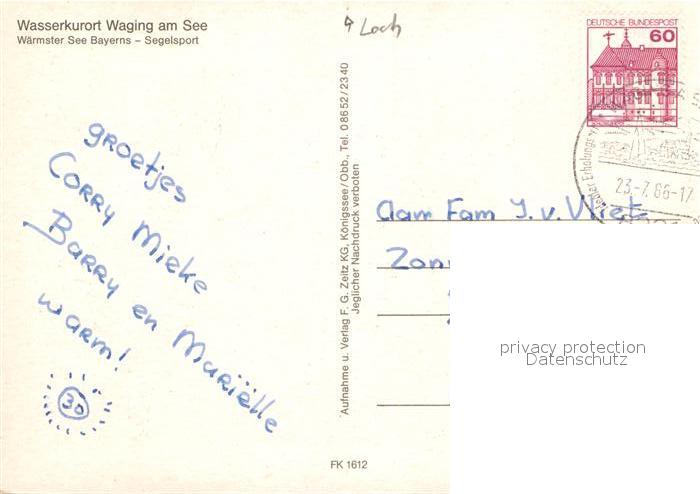 Wasserkurort Waging am See
Wärmster See Bayerns – Segelsport
groetjes
Corry Mieke
Barry en Mariëlle
warm!
30
Aufnahme u. Verlag F. G. Zeitz KG, Königssee/Obb., Tel. 08652/2340
Jeglicher Nachdruck verboten
FK 1612
Loch
DEUTSCHE BUNDESPOST
60
23.-7.86-17
Aam Fam J. v. Vliet
Zon
privacy protection
Datenschutz